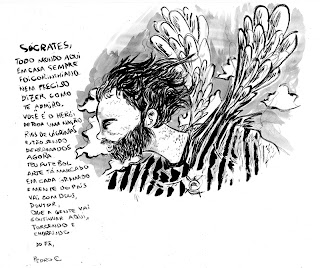 SOCRATES,
TODO MUNDO AQUI
EM CASA SEMPRE
FOI CORINTHIANO.
NEM PRECISO
DIZER COMO
TE ADMIRO.
VOCÊ É O HERÓI
DE TODA UMA NAÇÃO
RIOS DE LÁGRIMAS
ESTÃO SENDO
DERRAMADOS
AGORA
TEU FUTEBOL
ARTE TÁ MARCADO
EM CADA GRAMADO
E MENTE DO PAÍS
VAI COM DEUS,
DOUTOR,
QUE A GENTE VAI
CONTINUAR AQUI,
TORCENDO E
SOFRENDO
DO FÃ,
PEDRO C